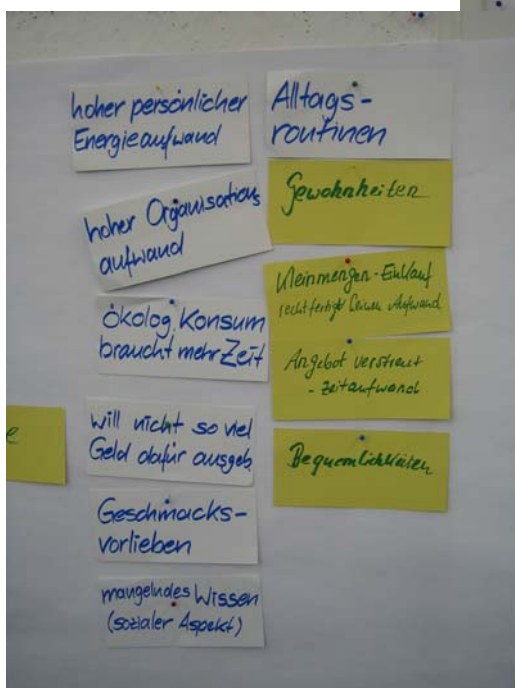 hoher persönlicher
Energieaufwand
hoher Organisations
aufwand
ökolog. Konsum
braucht mehr Zeit
will nicht so viel
Geld dafür ausgeb.
Geschmacks-
vorlieben
mangelndes Wissen
(sozialer Aspekt)
Alltags-
routinen
Gewohnheiten
Kleinmengen-Einkauf
rechtfertigt keinen Aufwand
Angebot verstreut
- Zeitaufwand
Bequemlichkeiten
e